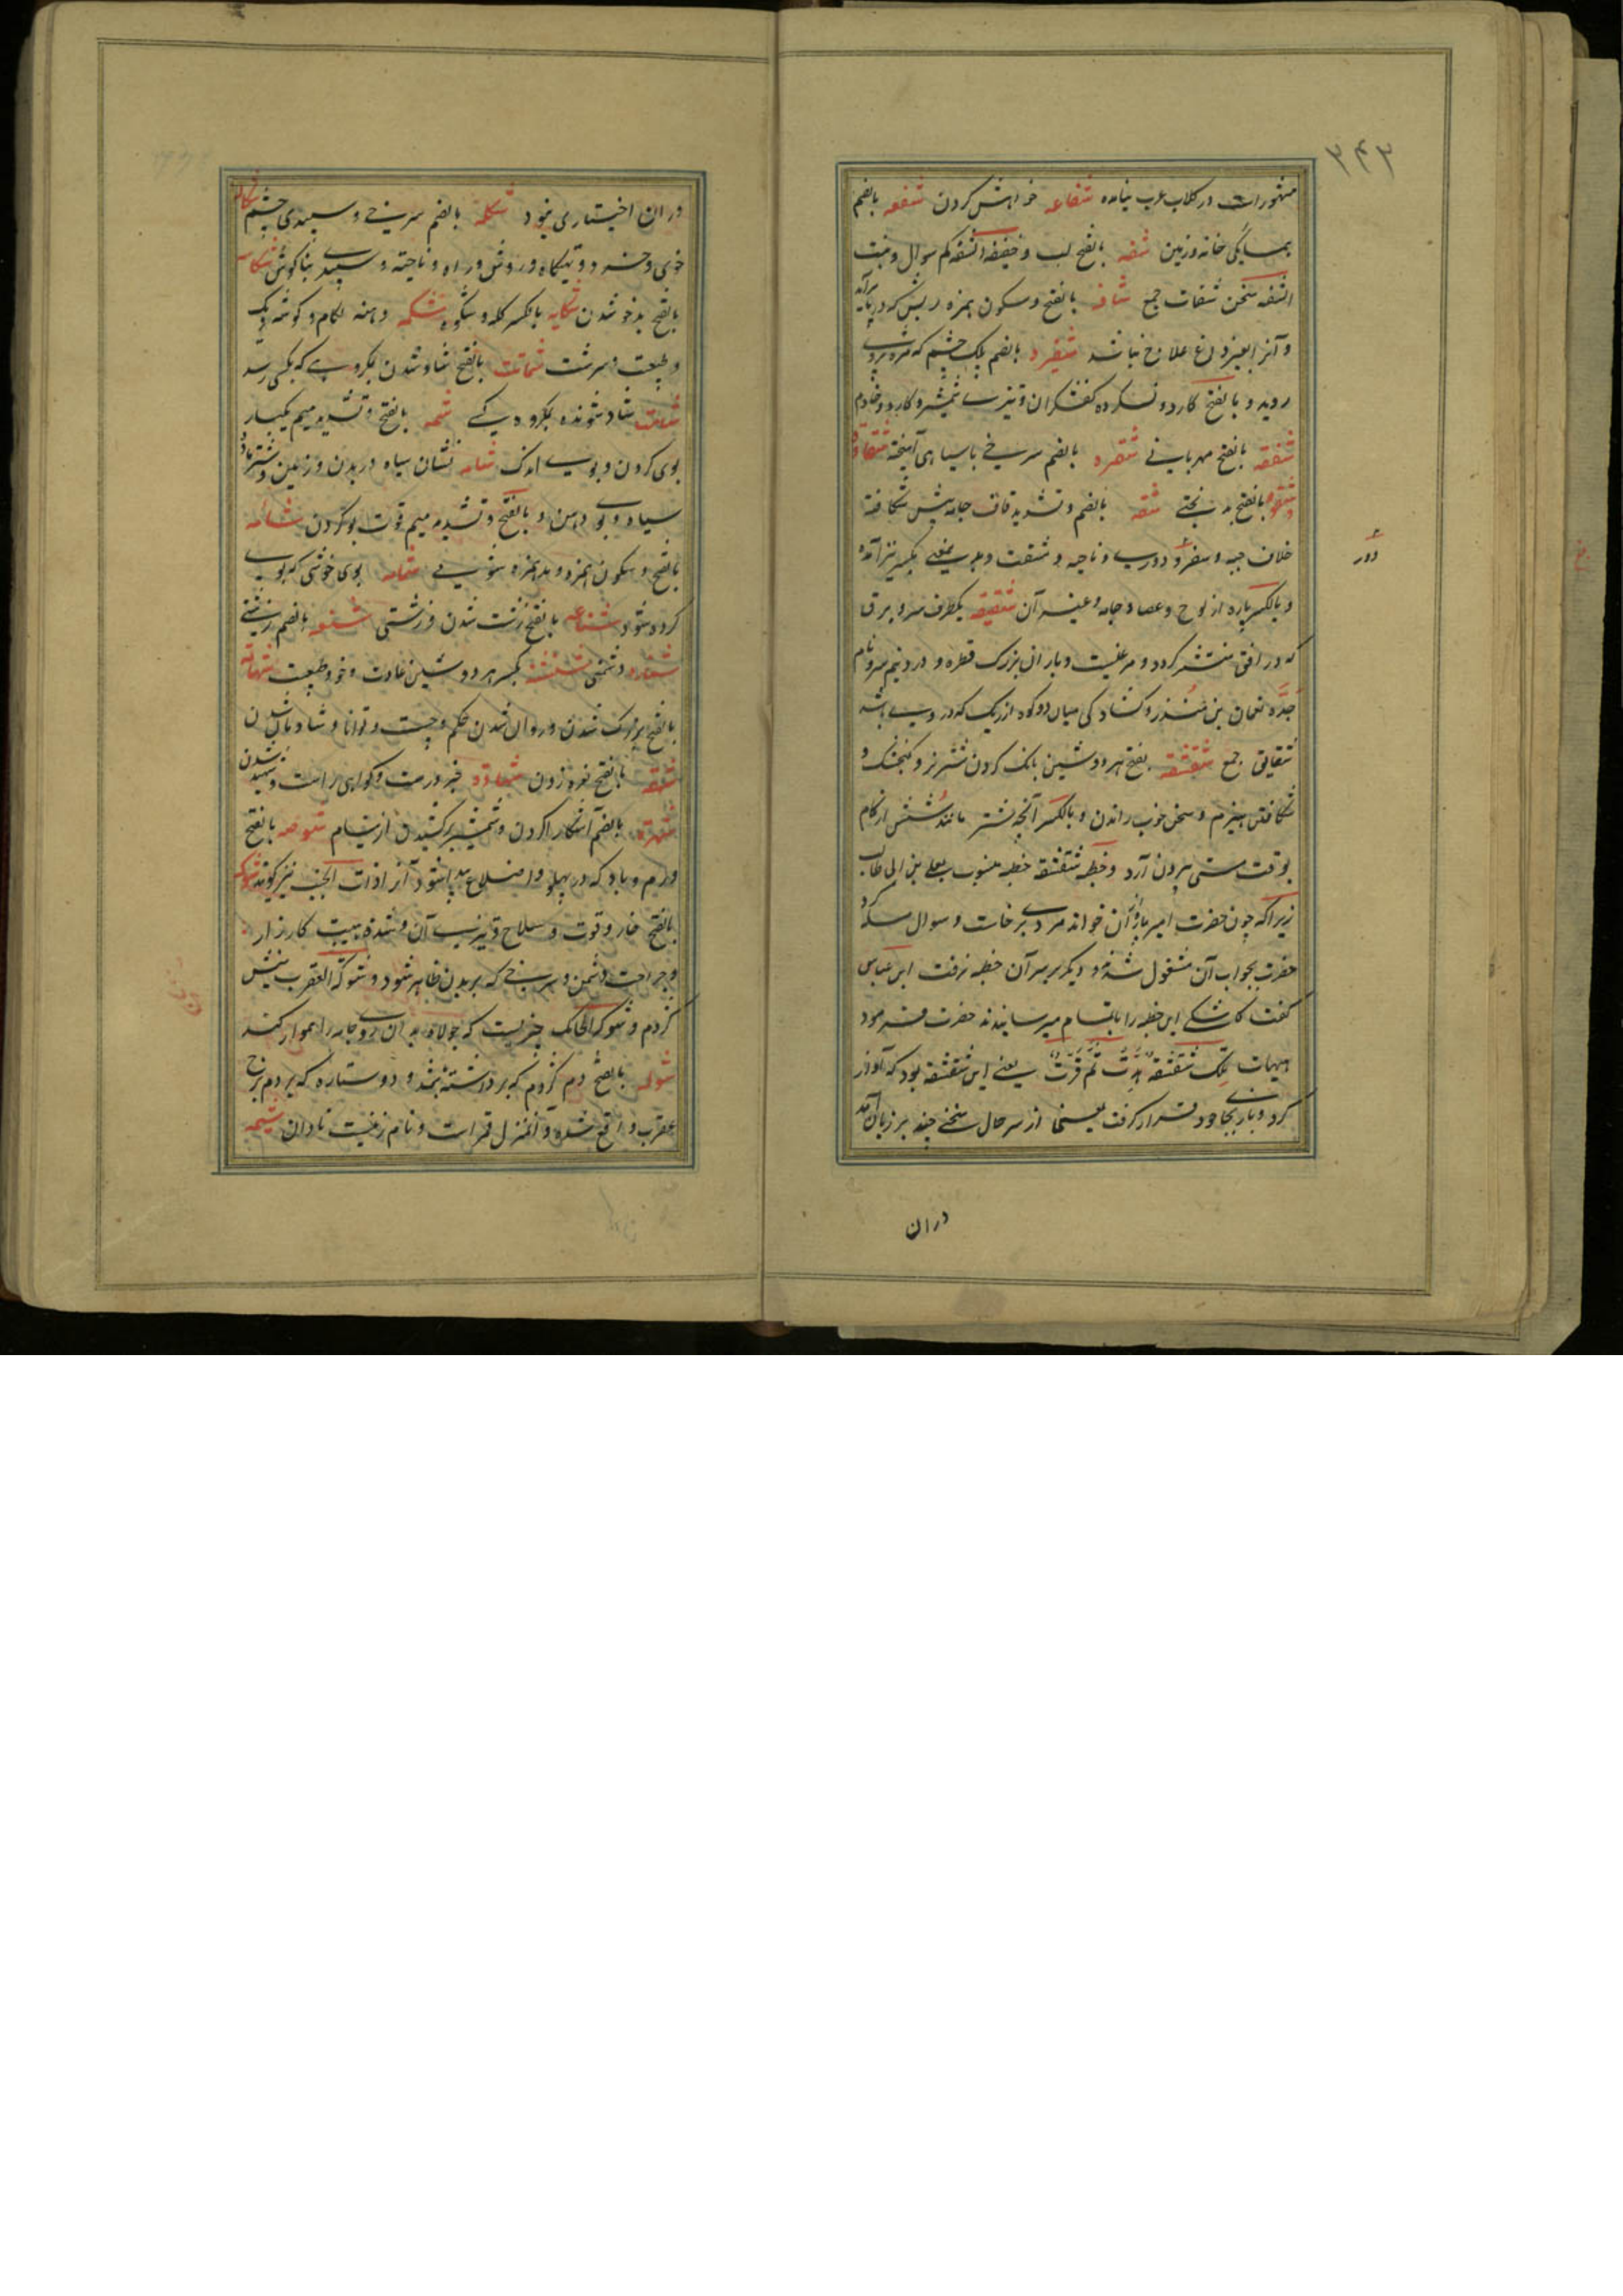 ۳۴۳
مشهور است در کلاب عرب نیامده شفاعه خواهش کردن شفعه بالضم
همسایگی خانه و زمین شفه بالفتح لب و خفیفه الشفه کم سوال و بنت
الشفه سخن شفات جمع شافه بالفتح و سکون همزه ریش که در پا برآید
و آنرا بغیر داغ علاج نباشد شفره بالضم پلک چشم که مژه بروی
روید و بالفتح کارد و نسکرده کفشگران و تیزی شمشیر و کارد و خادم
شفقه بالفتح مهربانی شقره بالضم سرخی با سیاهی آمیخته شقاوة
و شقوه بالفتح بدبختی شقه بالضم و تشدید قاف جامه پیش شکافته
خلاف جبه و سفر دور و دوری و ناحیه و مشقت و بدین معنی بکسر نیز آمده
دور
و بالکسر پاره از لوح و عصا و جامه و غیر آن شقیقه یکطرف سر و برق
که در افق منتشر گردد و مرغیست و باران بزرگ قطره و درد نیم سر و نام
جده نعمان بن منذر و گشادگی میان دو کوه از ریگ که در وی باشد
شقایق جمع شقشقه بفتح هر دو شین بانگ کردن شتر نر و گنجشک و
شکافتن هیزم و سخن خوب راندن و بالکسر آنچه شتر مانند شش از کام
بوقت مستی بیرون آرد و خطبه شقشقه خطبه منسوب بعلی بن ابی طالب
زیرا که چون حضرت امیر باز آن خواند مردی برخاست و سوال مسئله کرد
حضرت بجواب آن مشغول شد و دیگر بر سر آن خطبه نرفت ابن عباس
گفت کاشکی این خطبه را باتمام میرسانیدند حضرت فرمود
هیهات تلک شقشقة هدرت ثم قرت یعنی این شقشقه بود که آواز
کرد و باز بجای خود قرار گرفت یعنی از سر حال سخنی چند بر زبان آمد
دران
دران اختیاری نبود شکله بالضم سرخی و سپیدی چشم شاکله
خوی و تهیگاه و روش و راه و ناحیه و سپیدی بناگوش شکاسه
بالفتح بدخو شدن شکایه بالکسر گله و شکوه شکیمه دهنه لگام و گوشه دیگ
و طبیعت و سرشت شماتت بالفتح شاد شدن بمکروهی که بکسی رسد
شامت شاد شونده بمکروه کسی شمه بالفتح و تشدید میم یکبار
بوی کردن و بوی اندک شامه نشان سیاه در بدن و زمین و شتر ماده
سیاه و بوی دهن و بالفتح و تشدید میم قوت بو کردن شأمه
بالفتح و سکون همزه و مد همزه شومی شمامه بوی خوشی که بوی
کرده شود شناعه بالفتح زشت شدن و زشتی شنعه بالضم زشتی
شنائه دشمنی شنشنه بکسر هر دو شین عادت و خو و طبیعت شهامة
بالفتح بزرگ شدن و روان شدن حکم و چست و توانا و شادمان شدن
شهقه بالفتح نعره زدن شهادة خبر درست و گواهی راست و شهید شدن
شهرة بالضم آشکارا کردن و شمشیر برکشیدن از نیام شوصه بالفتح
ورم و باد که در پهلو و اضلاع پیدا شود آنرا ذات الجنب نیز گویند شوکه
بالفتح خار و قوت و سلاح و تیزی آن و شدة هیبت کارزار
و جراحت دشمن و سرخی که بر بدن ظاهر شود و شوکة العقرب نیش
گژدم و شوکة الحایک چیزیست که جولاه بدان روی جامه را هموار کند
شوله بالفتح دم گژدم که برداشته باشد و دو ستاره که بر دم برج
عقرب واقع شده و آنمنزل قمر است و نام زنیست نادان شیمه